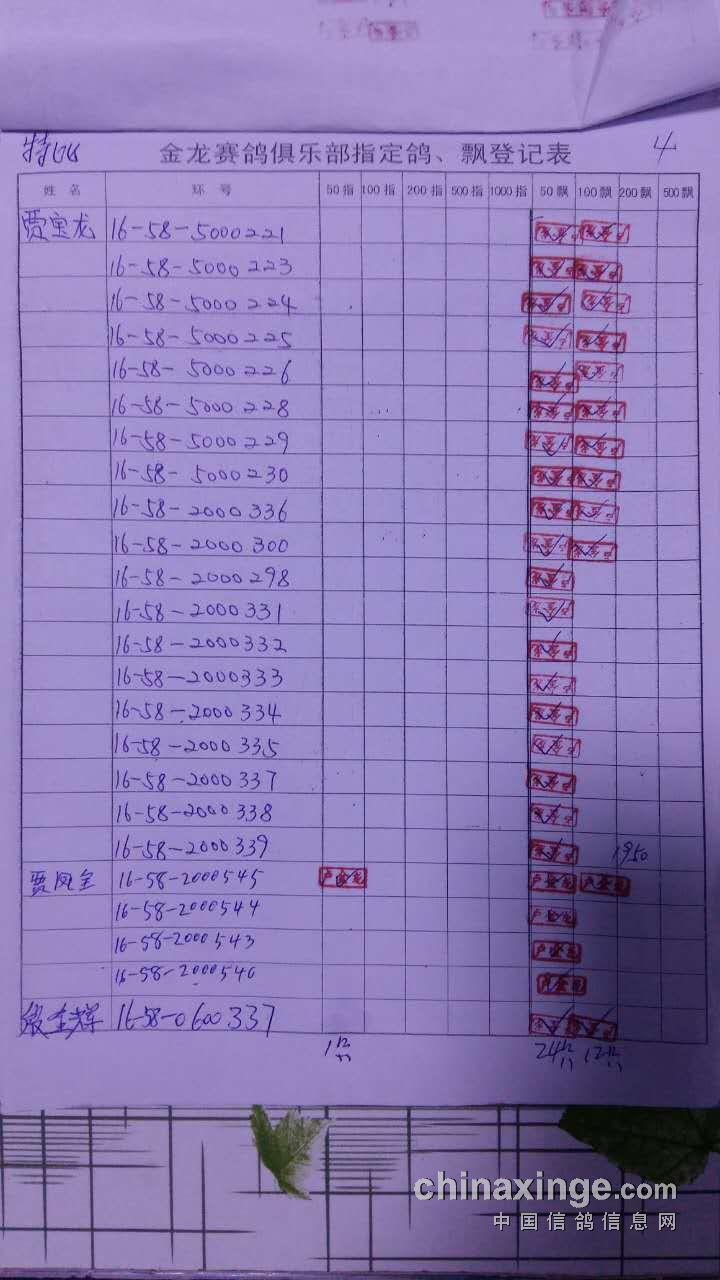 4
金龙赛鸽俱乐部指定鸽、飘登记表
姓 名 环 号 50指 100指 200指 500指 1000指 50飘 100飘 200飘 500飘
贾宝龙 16-58-5000221
16-58-5000223
16-58-5000224
16-58-5000225
16-58-5000226
16-58-5000228
16-58-5000229
16-58-5000230
16-58-2000336
16-58-2000300
16-58-2000298
16-58-2000331
16-58-2000332
16-58-2000333
16-58-2000334
16-58-2000335
16-58-2000337
16-58-2000338
16-58-2000339 1950
贾凤全 16-58-2000545
16-58-2000544
16-58-2000543
16-58-2000540
16-58-0600337
1 24 12
chinaxinge.com
中国信鸽信息网